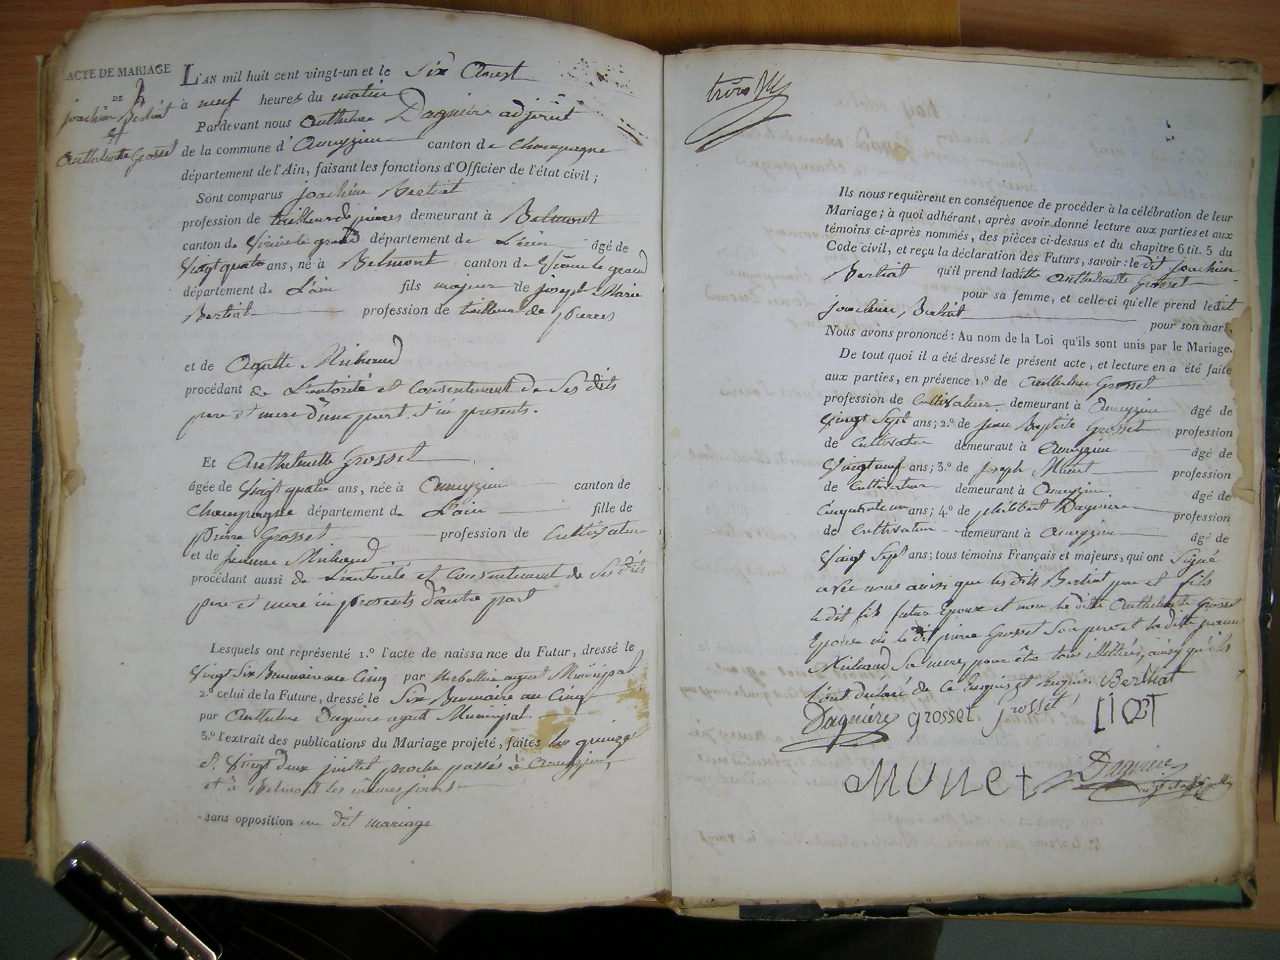 ACTE DE MARIAGE
DE
joachim Bertiat
et
Anthelmette Grosset
L'AN mil huit cent vingt-un et le Six Aoust
à neuf heures du matin
Pardevant nous Anthelme Dagniere adjoint
de la commune d' Ameyzieu canton de Champagne
département de l'Ain, faisant les fonctions d'Officier de l'état civil;
Sont comparus joachim Bertiat
profession de tailleur de pierres demeurant à Belmont
canton de Virieu le grand département de L'ain âgé de
Vingt quatre ans, né à Belmont canton de Virieu le grand
département de L'ain fils majeur de joseph Marie
Bertiat profession de tailleur de pierres
et de Agathe Michaud
procédant de L'autorité et Consentement de Ses dits
pere et mere d'une part, et ici presents.
Et Anthelmette Grosset
âgée de Vingt quatre ans, née à Ameyzieu canton de
Champagne département de L'ain fille de
pierre Grosset profession de Cultivateur
et de jeanne Michaud
procédant aussi de L'autorité et Consentement de Ses dits
pere et mere ici presents d'autre part
Lesquels ont représenté 1.º l'acte de naissance du Futur, dressé le
Vingt Six Brumaire an Cinq par agent Municipal
2.º celui de la Future, dressé le Six Brumaire an Cinq
par Anthelme Dagniere agent Municipal
3.º l'extrait des publications du Mariage projeté, faites les quinze
et Vingt deux juillet proche passés à Ameyzieu,
et à Belmont les mêmes jours
sans opposition au dit mariage
trois
Ils nous requièrent en conséquence de procéder à la célébration de leur
Mariage; à quoi adhérant, après avoir donné lecture aux parties et aux
témoins ci-après nommés, des pièces ci-dessus et du chapitre 6 tit. 5 du
Code civil, et reçu la déclaration des Futurs, savoir: le dit joachim
Bertiat qu'il prend ladite Anthelmette Grosset
pour sa femme, et celle-ci qu'elle prend ledit
joachim Bertiat pour son mari.
Nous avons prononcé: Au nom de la Loi qu'ils sont unis par le Mariage.
De tout quoi il a été dressé le présent acte, et lecture en a été faite
aux parties, en présence 1.º de Anthelme Grosset
profession de Cultivateur demeurant à Ameyzieu âgé de
Vingt Sept ans; 2.º de jean Baptiste Grosset profession
de Cultivateur demeurant à Ameyzieu âgé de
Vingt neuf ans; 3.º de joseph Munet profession
de Cultivateur demeurant à Ameyzieu âgé de
ans; 4.º de philibert Dagniere profession
de Cultivateur demeurant à Ameyzieu âgé de
Vingt Sept ans; tous témoins Français et majeurs, qui ont Signé
avec nous ainsi que les dits Bertiat pere et fils
le dit fils futur Epoux et non la ditte Anthelmette Grosset
Epouse ni le dit pierre Grosset Son pere et la ditte jeanne
Michaud Sa mere, pour être tous illitérés, ainsi qu'ils
l'ont declaré de ce Enquis et requis, Berthiat
Dagniere grosset grosset
Munet Dagniere